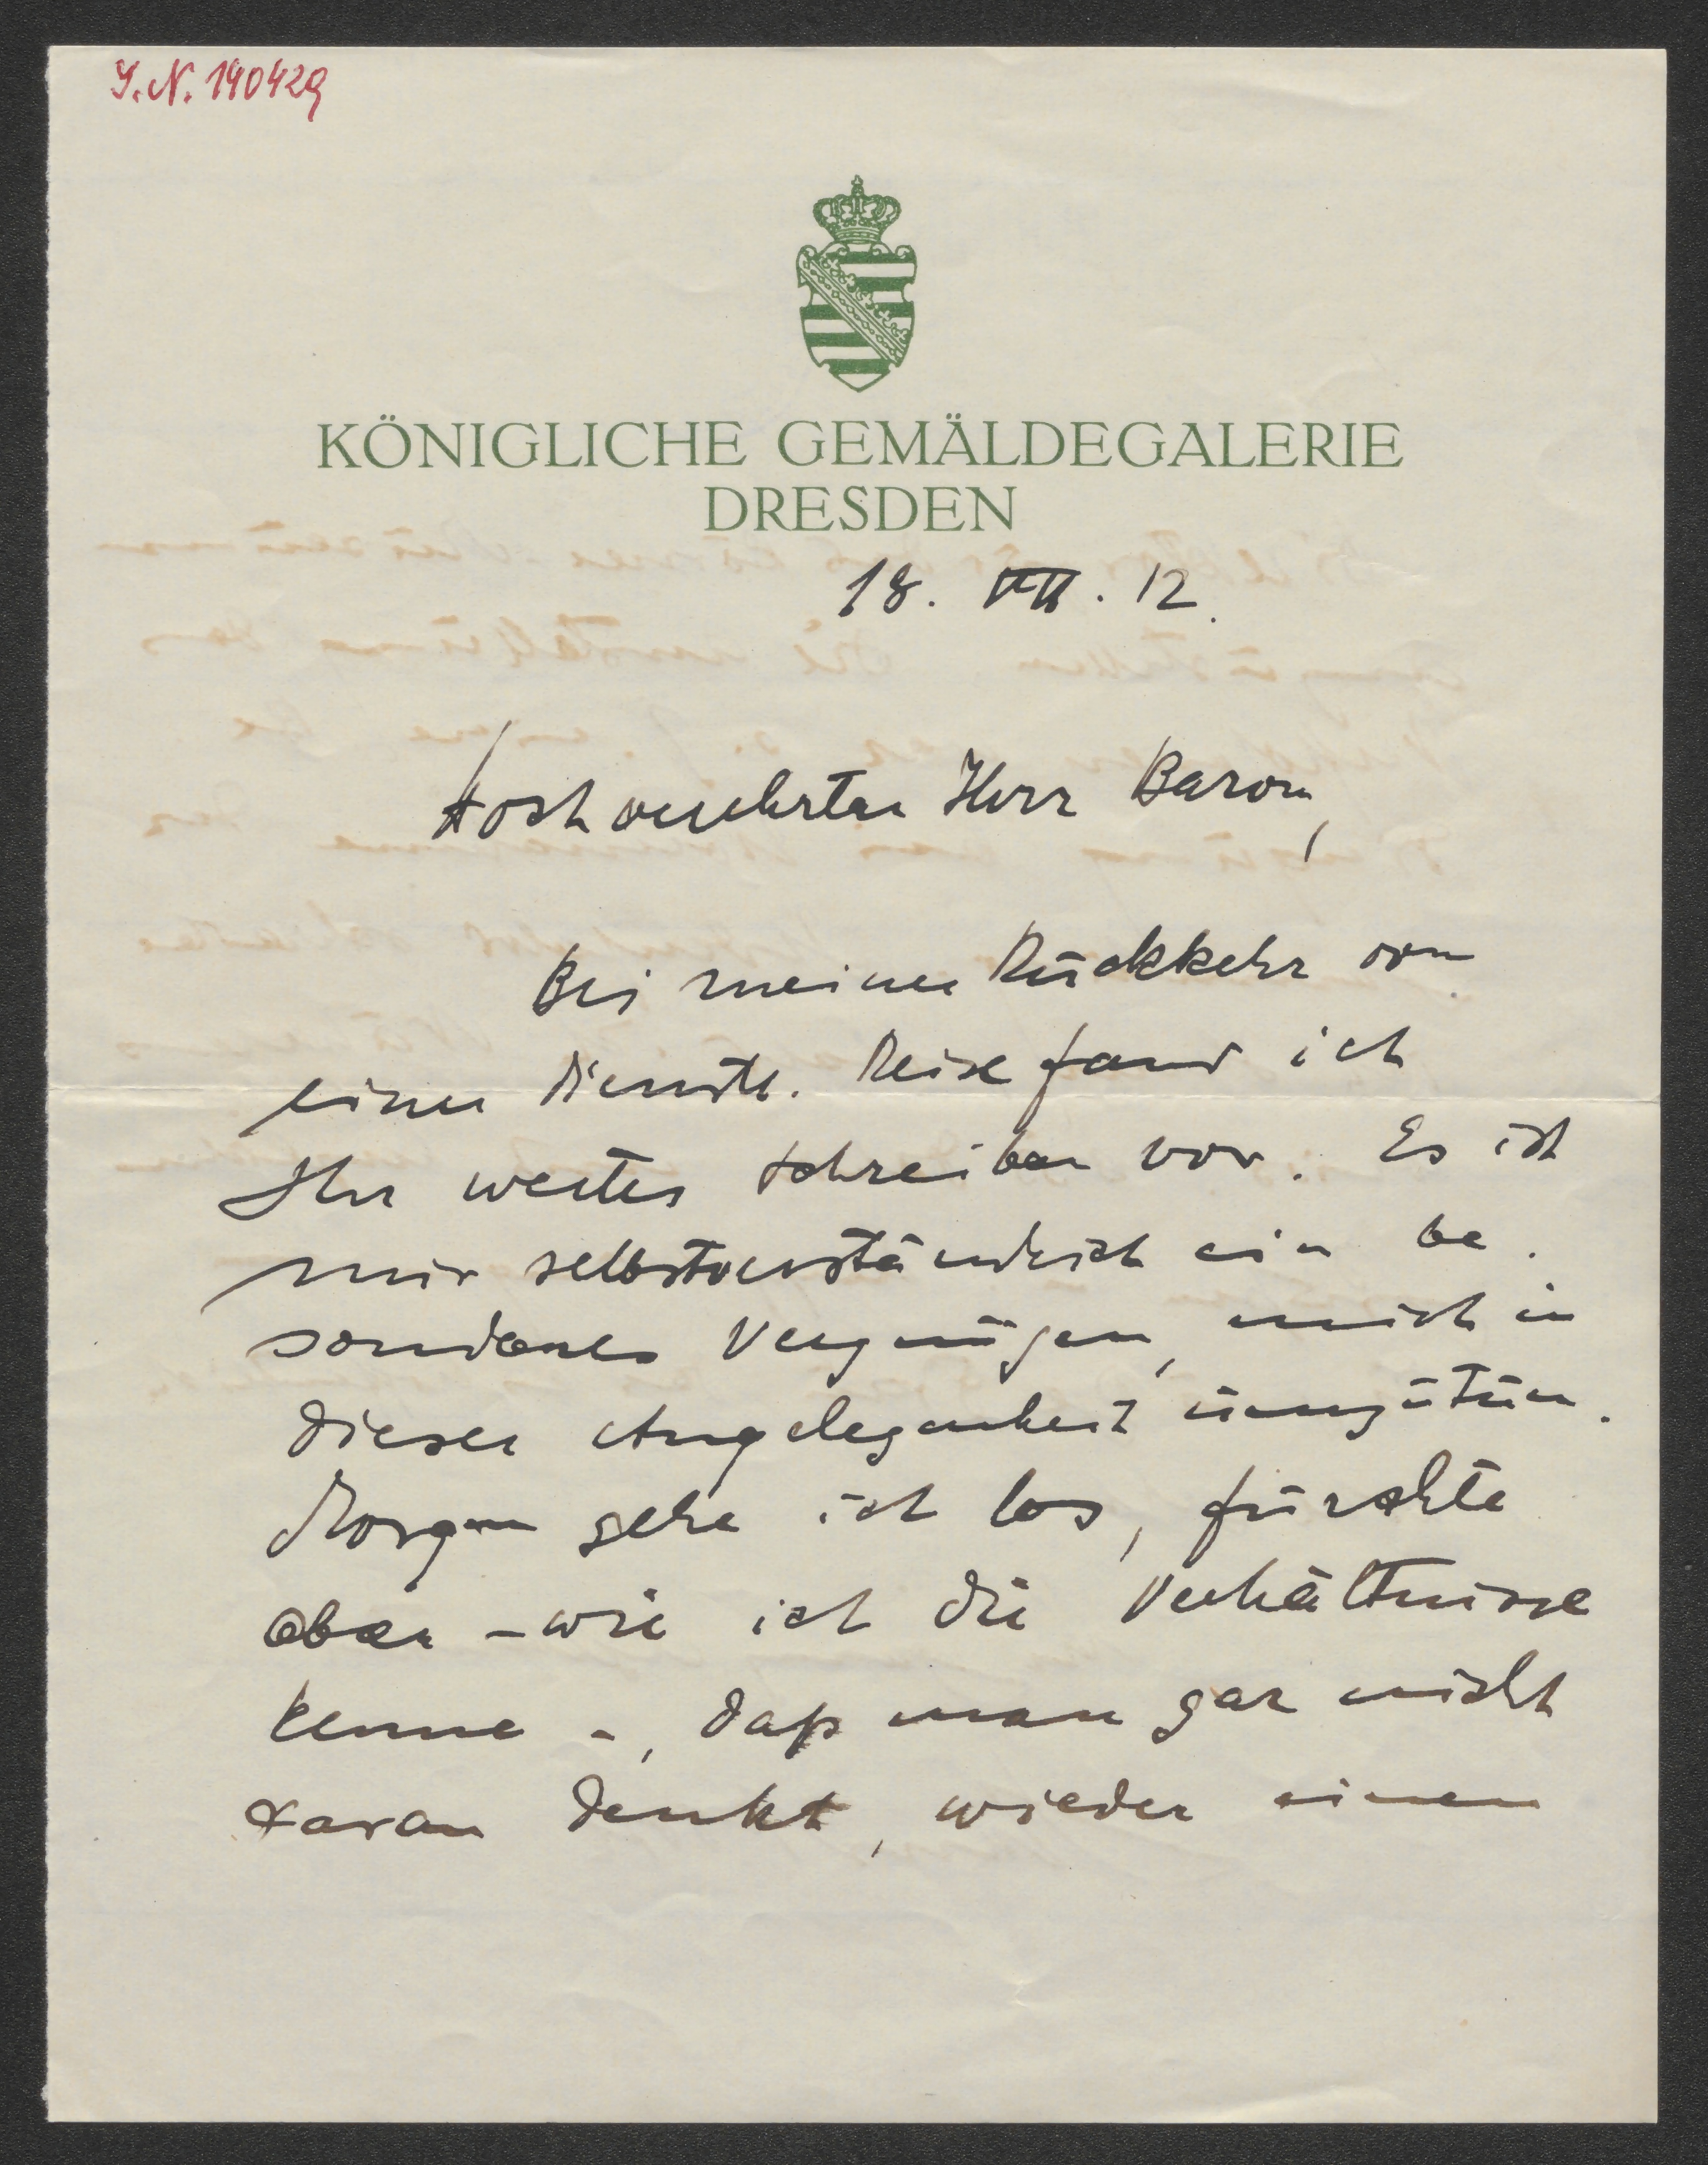 I.N. 140429
KÖNIGLICHE GEMÄLDEGALERIE
DRESDEN
18. VII. 12.
Hochverehrter Herr Baron,
Bei meiner Rückkehr von
einer dienstl. Reise fand ich
Ihr wertes Schreiben vor. Es ist
mir selbstverständlich ein be-
sonderes Vergnügen, mich in
dieser Angelegenheit umzutun.
Morgen gehe ich los, fürchte
aber – wie ich die Verhältnisse
kenne –, daß man gar nicht
daran denkt, wieder einen